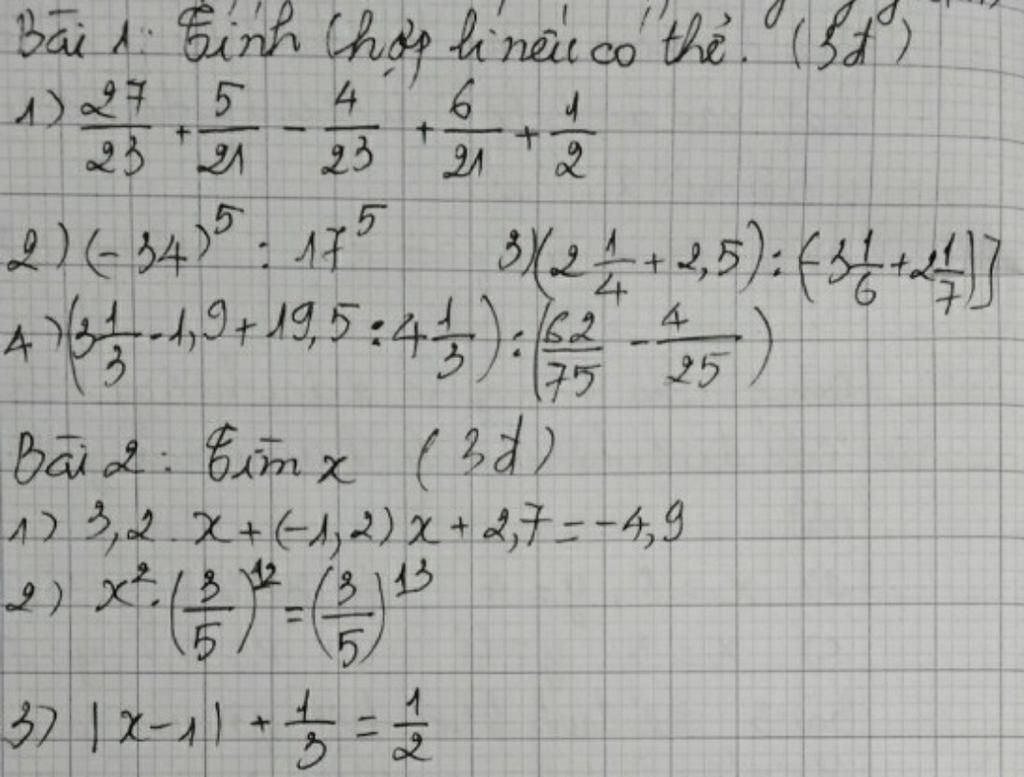 Bài 1: Tính (hợp lí nếu có thể. (3đ)
1) 27/23 + 5/21 - 4/23 + 6/21 + 1/2
2) (-34)^5 : 17^5 3) (2 1/4 + 2,5) : (-3 1/6 + 2 1/7)]
4) (3 1/3 - 1,9 + 19,5 : 4 1/3) : (62/75 - 4/25)
Bài 2: Tìm x (3đ)
1) 3,2 . x + (-1,2) x + 2,7 = -4,9
2) x² . (3/5)^12 = (3/5)^13
3) |x-1| + 1/3 = 1/2